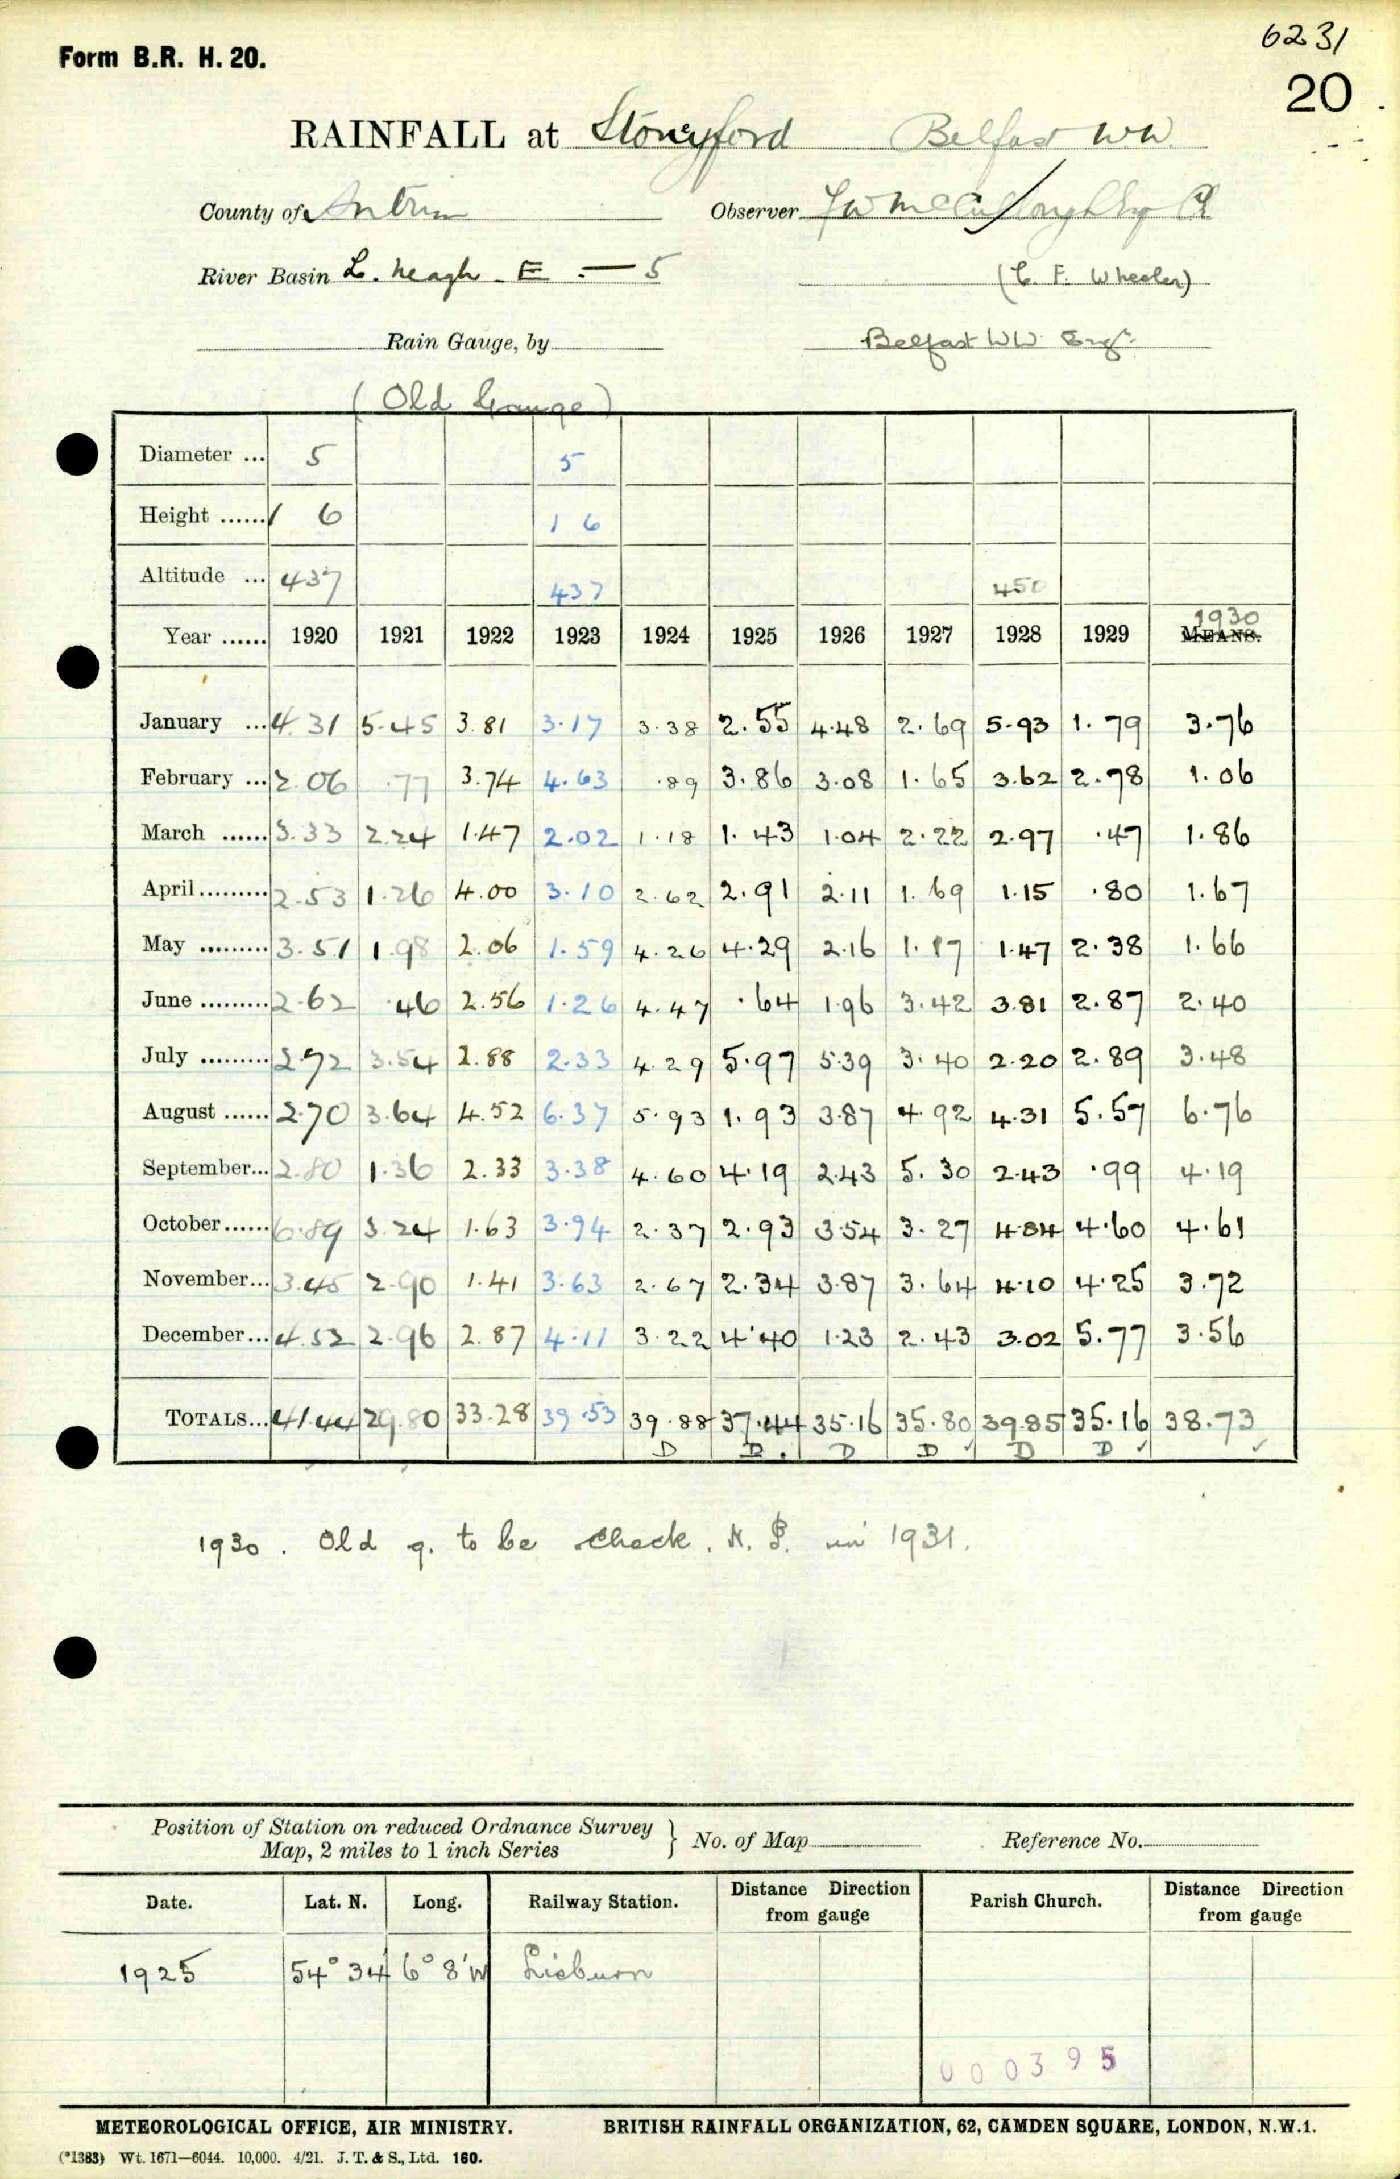 6231
Form B.R. H. 20.
20
RAINFALL at Stoneyford Belfast WW.
County of Antrim Observer FW McCullough Esq CE
River Basin L. Neagh - E - 5 (C. F. Wheeler)
Rain Gauge, by Belfast WW. Engr.
(Old Gauge)
Diameter ... 5 5
Height ...... 1 6 1 6
Altitude ... 437 437 450
Year ...... 1920 1921 1922 1923 1924 1925 1926 1927 1928 1929 MEANS. 1930
January ... 4.31 5.45 3.81 3.17 3.38 2.55 4.48 2.69 5.93 1.79 3.76
February ... 2.06 .77 3.74 4.63 .89 3.86 3.08 1.65 3.62 2.78 1.06
March ...... 3.33 2.24 1.47 2.02 1.18 1.43 1.04 2.22 2.97 .47 1.86
April ......... 2.53 1.26 4.00 3.10 2.62 2.91 2.11 1.69 1.15 .80 1.67
May ......... 3.51 1.98 2.06 1.59 4.26 4.29 2.16 1.17 1.47 2.38 1.66
June ......... 2.62 .46 2.56 1.26 4.47 .64 1.96 3.42 3.81 2.87 2.40
July ......... 2.72 3.54 2.88 2.33 4.29 5.97 5.39 3.40 2.20 2.89 3.48
August ...... 2.70 3.64 4.52 6.37 5.93 1.93 3.87 4.92 4.31 5.57 6.76
September... 2.80 1.36 2.33 3.38 4.60 4.19 2.43 5.30 2.43 .99 4.19
October...... 6.89 3.24 1.63 3.94 2.37 2.93 3.54 3.27 4.84 4.60 4.61
November... 3.45 2.90 1.41 3.63 2.67 2.34 3.87 3.64 4.10 4.25 3.72
December... 4.52 2.96 2.87 4.11 3.22 4.40 1.23 2.43 3.02 5.77 3.56
TOTALS... 41.44 29.80 33.28 39.53 39.88 37.44 35.16 35.80 39.85 35.16 38.73
D D. D D ✓ D D ✓ ✓
1930. Old g. to be check. N. P. in 1931.
Position of Station on reduced Ordnance Survey
Map, 2 miles to 1 inch Series } No. of Map Reference No.
Date. Lat. N. Long. Railway Station. Distance Direction from gauge Parish Church. Distance Direction from gauge
1925 54° 34' 6° 8' W Lisburn
000395
METEOROLOGICAL OFFICE, AIR MINISTRY. BRITISH RAINFALL ORGANIZATION, 62, CAMDEN SQUARE, LONDON, N.W.1.
(*1383) Wt. 1671—6044. 10,000. 4/21. J. T. & S., Ltd. 160.